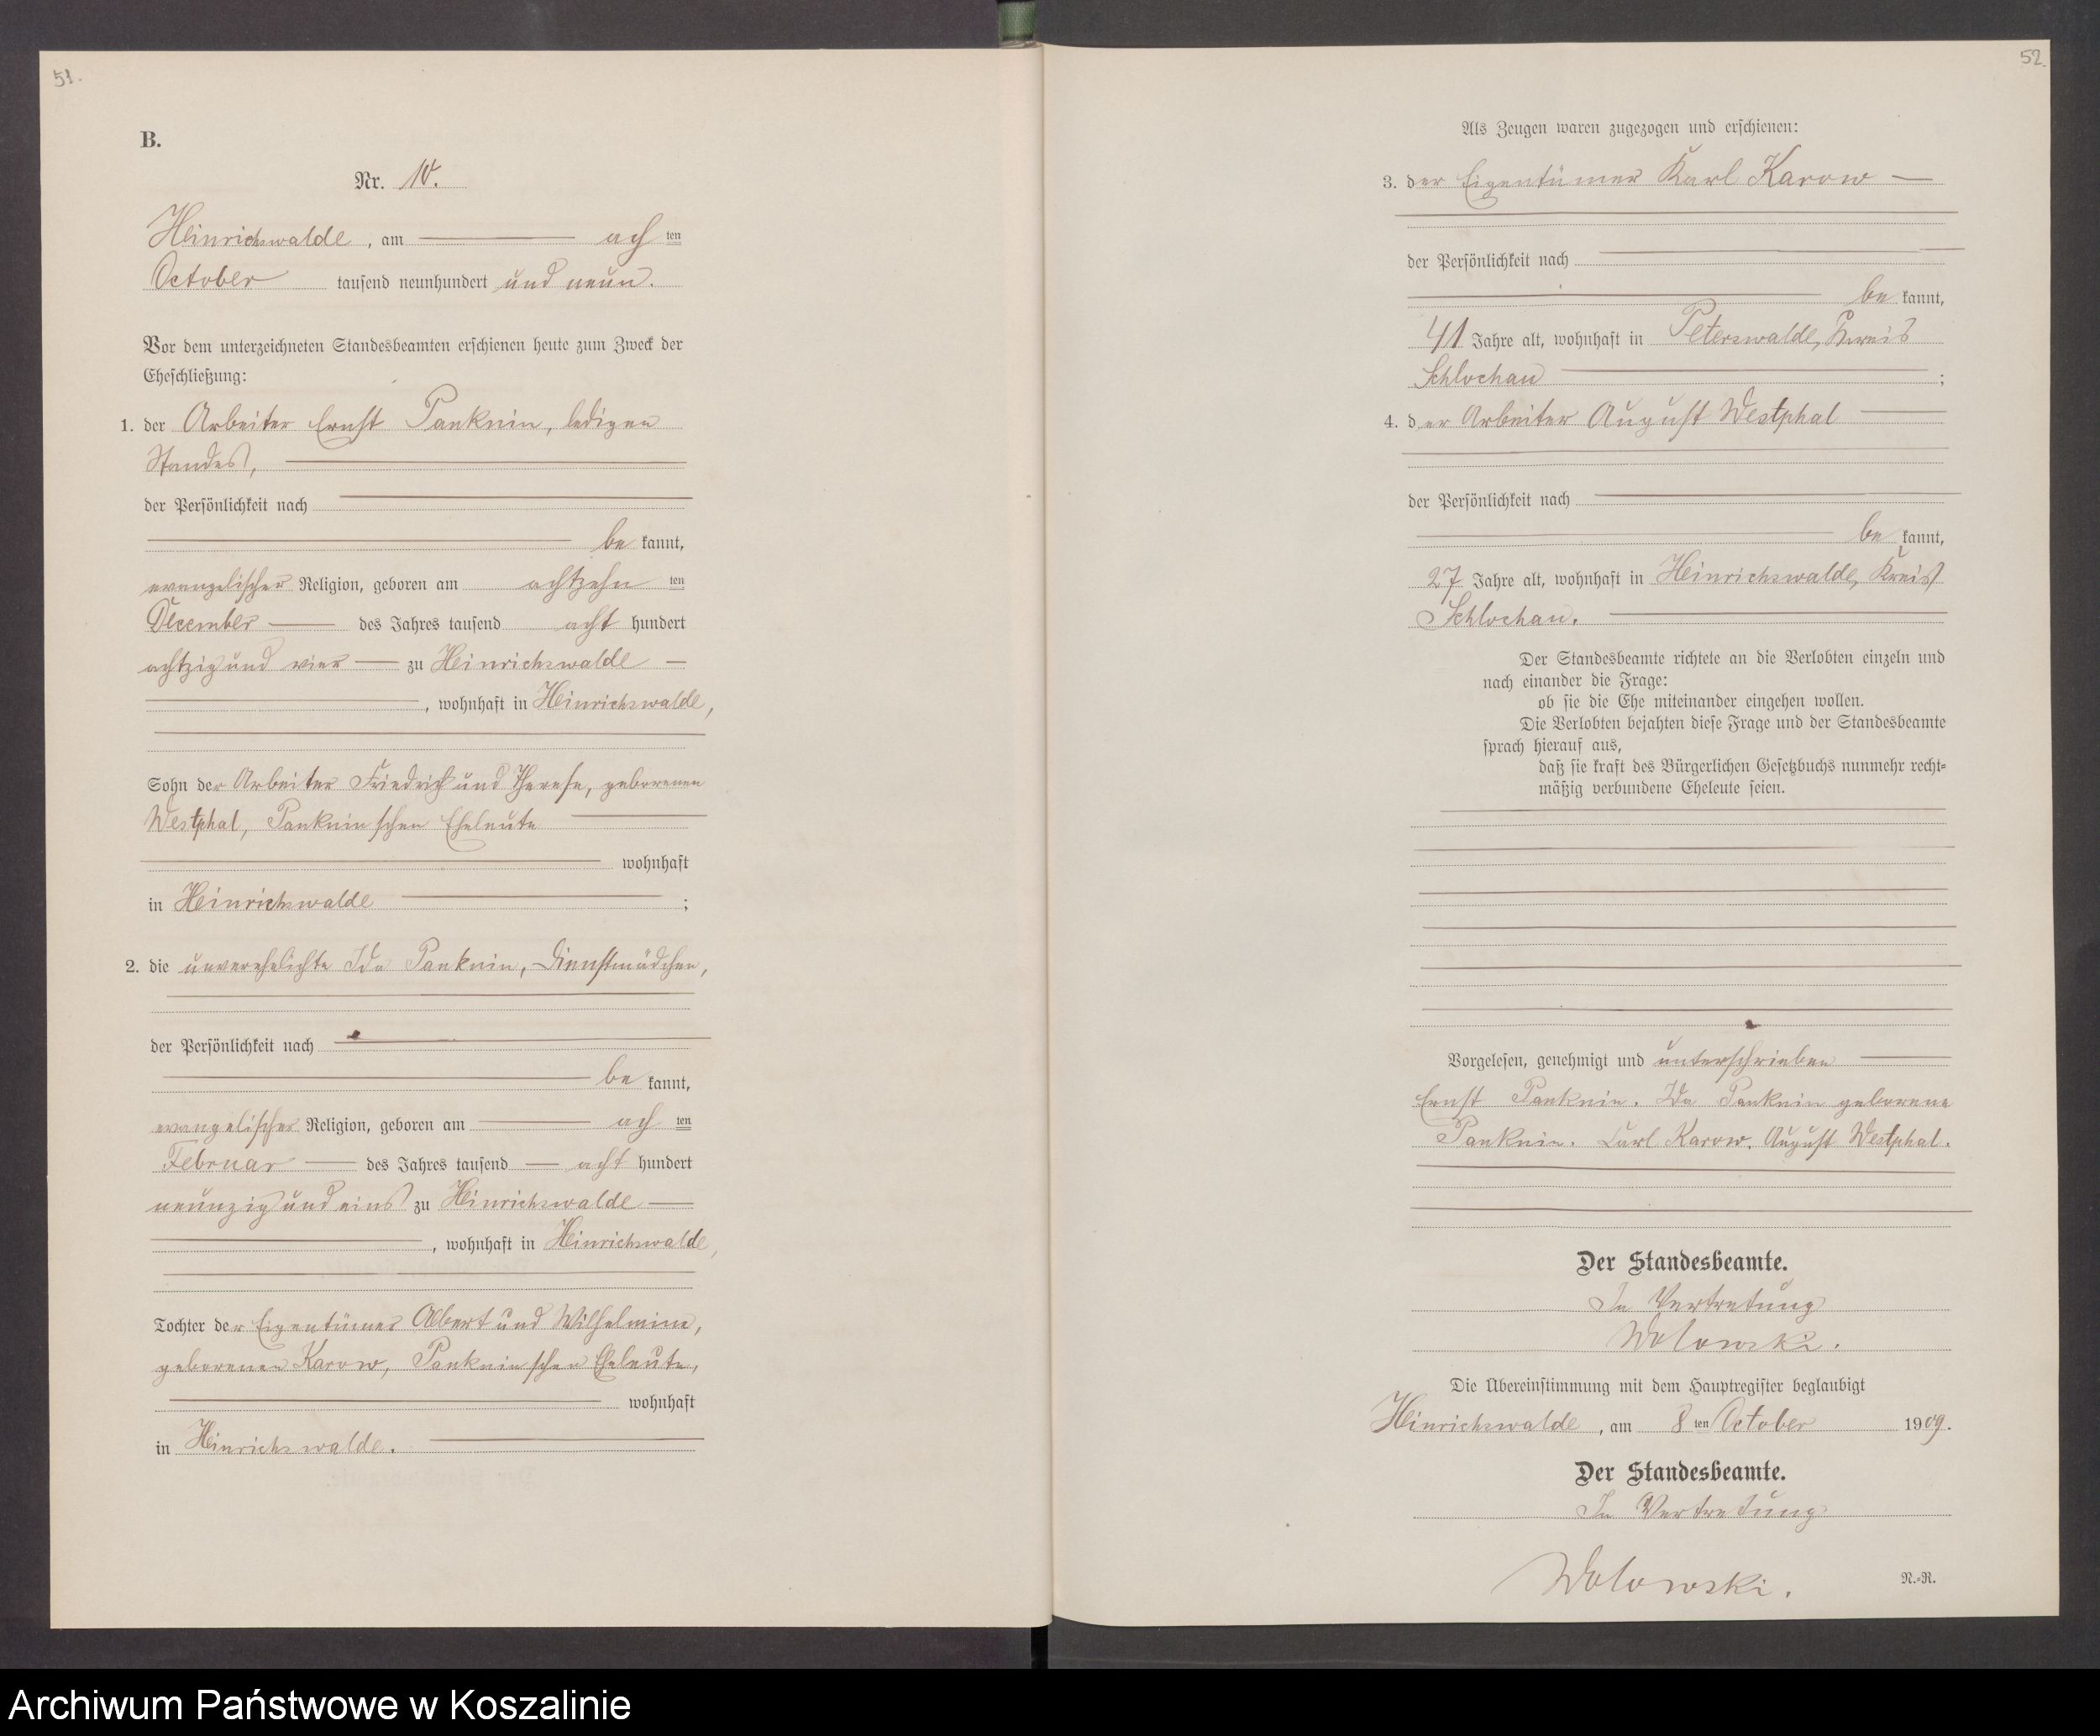 51.
B.
Nr. 10.
Heinrichswalde, am ach ten
October tausend neunhundert und neun.
Vor dem unterzeichneten Standesbeamten erschienen heute zum Zweck der
Eheschließung:
1. der Arbeiter Ernst Panknin, ledigen
Standes,
der Persönlichkeit nach
be kannt,
evangelischer Religion, geboren am achtzehn ten
December des Jahres tausend acht hundert
achtzig und vier zu Heinrichswalde
, wohnhaft in Heinrichswalde,
Sohn der Arbeiter Friedrich und Therese, geborenen
Westphal, Panknin'schen Eheleute
wohnhaft
in Heinrichswalde ;
2. die unverehelichte Ida Panknin, Dienstmädchen,
der Persönlichkeit nach
be kannt,
evangelischer Religion, geboren am ach ten
Februar des Jahres tausend acht hundert
neunzig und eins zu Heinrichswalde
, wohnhaft in Heinrichswalde,
Tochter der Eigentümer Albert und Wilhelmine,
geborenen Karow, Panknin'schen Eheleute,
wohnhaft
in Heinrichswalde.
52.
Als Zeugen waren zugezogen und erschienen:
3. der Eigentümer Karl Karow
der Persönlichkeit nach
be kannt,
41 Jahre alt, wohnhaft in Peterswalde, Kreis
Schlochau ;
4. der Arbeiter August Westphal
der Persönlichkeit nach
be kannt,
27 Jahre alt, wohnhaft in Heinrichswalde, Kreis
Schlochau.
Der Standesbeamte richtete an die Verlobten einzeln und
nach einander die Frage:
ob sie die Ehe miteinander eingehen wollen.
Die Verlobten bejahten diese Frage und der Standesbeamte
sprach hierauf aus,
daß sie kraft des Bürgerlichen Gesetzbuchs nunmehr recht-
mäßig verbundene Eheleute seien.
Vorgelesen, genehmigt und unterschrieben
Ernst Panknin. Ida Panknin geborene
Panknin. Karl Karow. August Westphal.
Der Standesbeamte.
In Vertretung
Wolowski.
Die Übereinstimmung mit dem Hauptregister beglaubigt
Heinrichswalde, am 8 ten October 1909.
Der Standesbeamte.
In Vertretung
Wolowski.
N.-R.
Archiwum Państwowe w Koszalinie